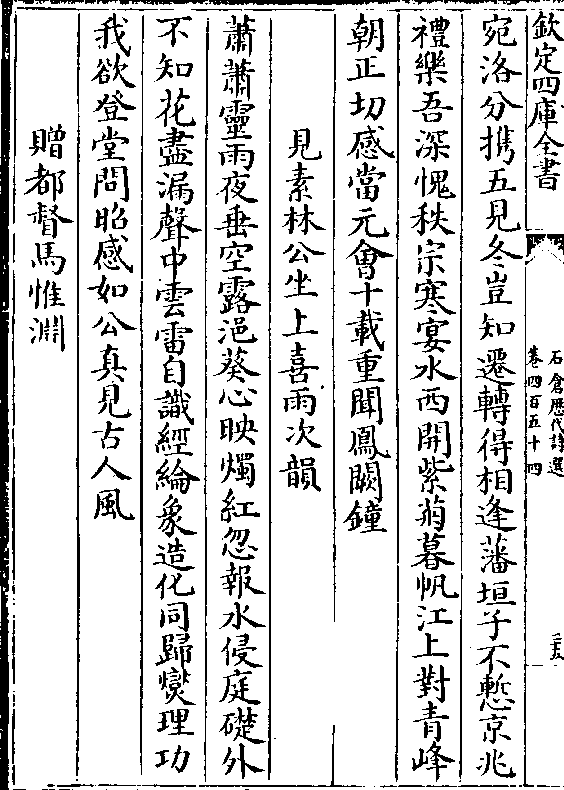 欽定四庫全書
石倉歷代詩選
卷四百五十四
三五
宛洛分携五見冬豈知遷轉得相逢藩垣子不慙京兆
禮樂吾深愧秩宗寒宴水西開紫菊暮帆江上對青峰
朝正切感當元會十載重聞鳳闕鐘
見素林公坐上喜雨次韻
蕭蕭靈雨夜垂空露浥葵心映燭紅忽報水侵庭礎外
不知花盡漏聲中雲雷自識經綸象造化同歸爕理功
我欲登堂問昭感如公真見古人風
贈都督馬惟淵